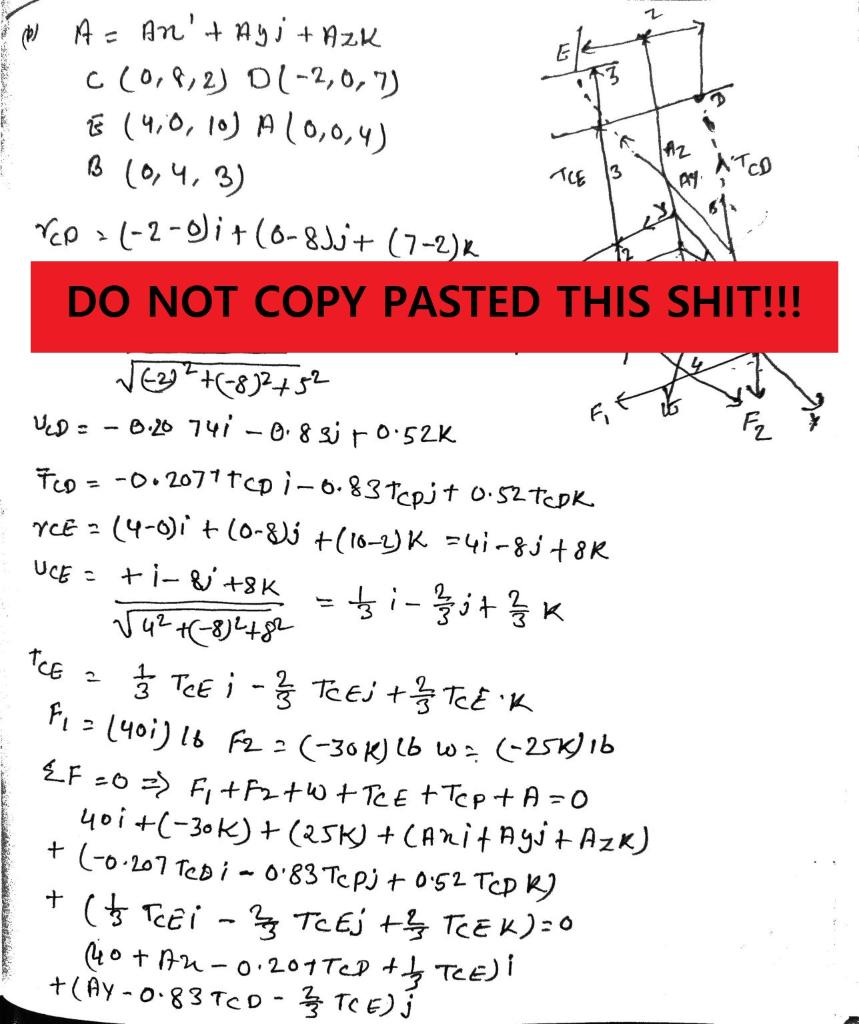 (b) A = Axi + Ayj + AzK
C (0,8,2) D(-2,0,7)
E (4,0,10) A(0,0,4)
B (0,4,3)
rCD = (-2-0)i + (0-8)j + (7-2)K
DO NOT COPY PASTED THIS SHIT!!!
√(-2)²+(-8)²+5²
UCD = -0.20 74i - 0.83j + 0.52K
TCD = -0.207TTCD i - 0.83TCDj + 0.52TCDK
rCE = (4-0)i + (0-8)j + (10-2)K = 4i-8j+8K
UCE = +i-8j+8K / √4²+(-8)²+8² = 1/3 i - 2/3 j + 2/3 K
TCE = 1/3 TCE i - 2/3 TCEj + 2/3 TCE.K
F1 = (40i) lb F2 = (-30K) lb w = (-25K) lb
ΣF = 0 => F1+F2+W+TCE+TCD+A=0
40i+(-30K)+(25K)+(Axi+Ayj+AzK)
+ (-0.207 TCDi - 0.83TCDj + 0.52 TCD K)
+ (1/3 TCEi - 2/3 TCEj + 2/3 TCE K)=0
(40+Ax-0.207TCD+1/3 TCE)i
+(AY-0.83TCD-2/3 TCE)j
Z
E
3
B
TCE
3
Az
AY
TCD
2
4
F1
F2